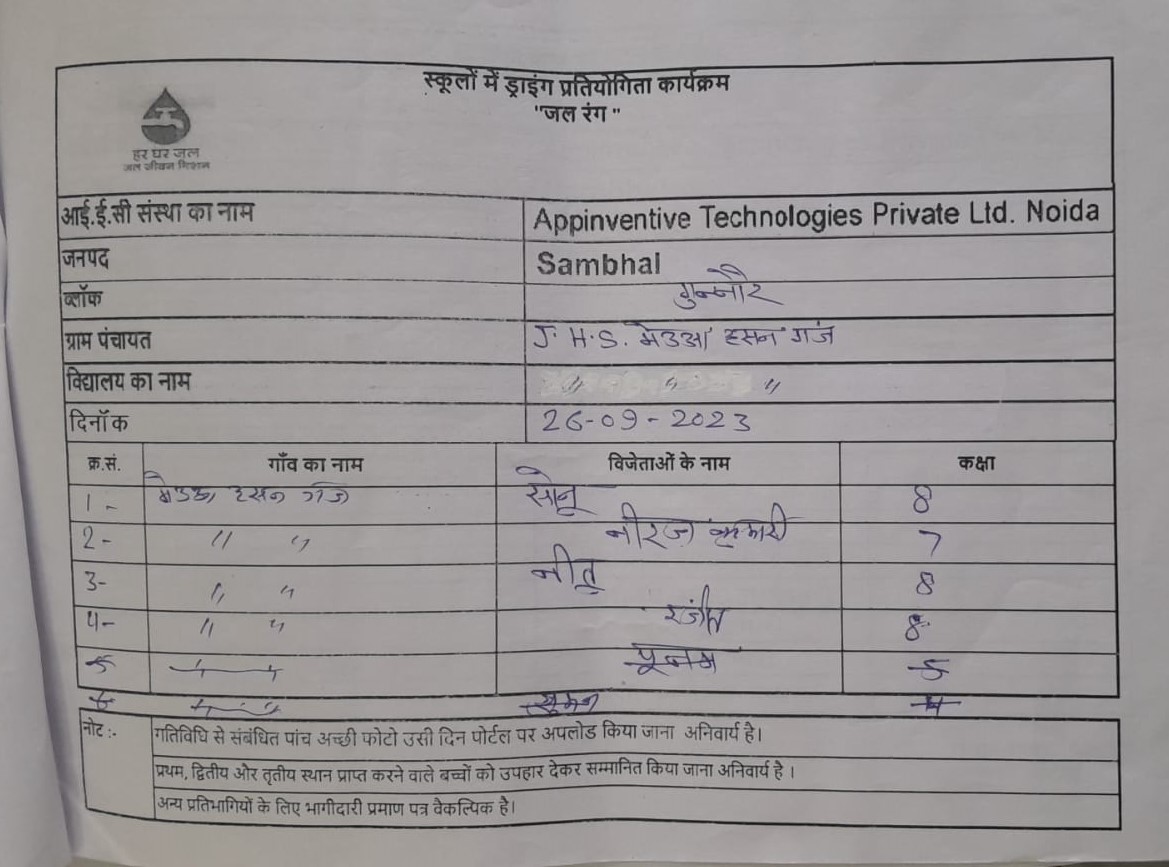 स्कूलों में ड्राइंग प्रतियोगिता कार्यक्रम
"जल रंग"
हर घर जल
जल जीवन मिशन
आई.ई.सी संस्था का नाम Appinventive Technologies Private Ltd. Noida
जनपद Sambhal
ब्लॉक गुन्नौर
ग्राम पंचायत J.H.S. मेउआ हसन गंज
विद्यालय का नाम 〃 〃 〃
दिनॉक 26-09-2023
क्र.सं. गाँव का नाम विजेताओं के नाम कक्षा
1- हसन गंज सोनू 8
2- 〃 〃 नीरज कुमारी 7
3- 〃 〃 नीतू 8
4- 〃 〃 रंजीत 8
5 पूनम 5
6 सुमन 4
नोट :- गतिविधि से संबंधित पांच अच्छी फोटो उसी दिन पोर्टल पर अपलोड किया जाना अनिवार्य है।
प्रथम, द्वितीय और तृतीय स्थान प्राप्त करने वाले बच्चों को उपहार देकर सम्मानित किया जाना अनिवार्य है ।
अन्य प्रतिभागियों के लिए भागीदारी प्रमाण पत्र वैकल्पिक है।